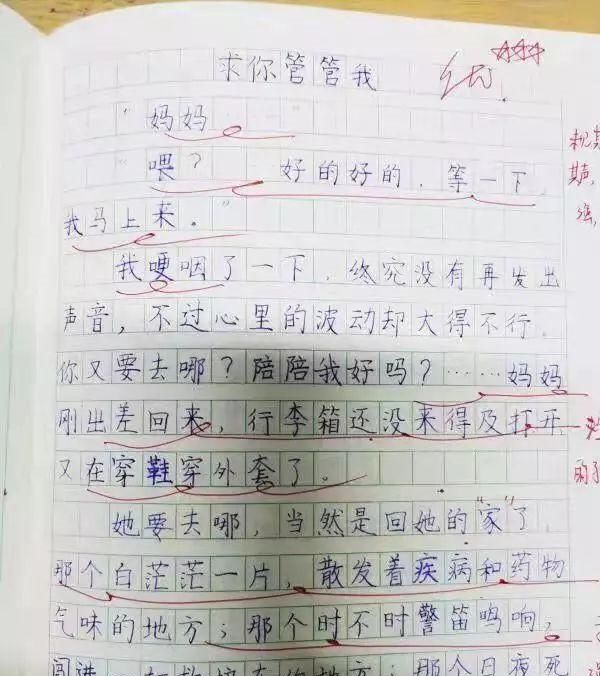 求你管管我
优
"妈妈……"
"喂？……好的好的，等一下，
我马上来。"
我哽咽了一下，终究没有再发出
声音，不过心里的波动却大得不行。
你又要去哪？陪陪我好吗？……妈妈
刚出差回来，行李箱还没来得及打开
又在穿鞋穿外套了。
她要去哪，当然是回她的"家"了，
那个白茫茫一片，散发着疾病和药物
气味的地方；那个时不时警笛鸣响，
闯进一
地方；那个日夜死